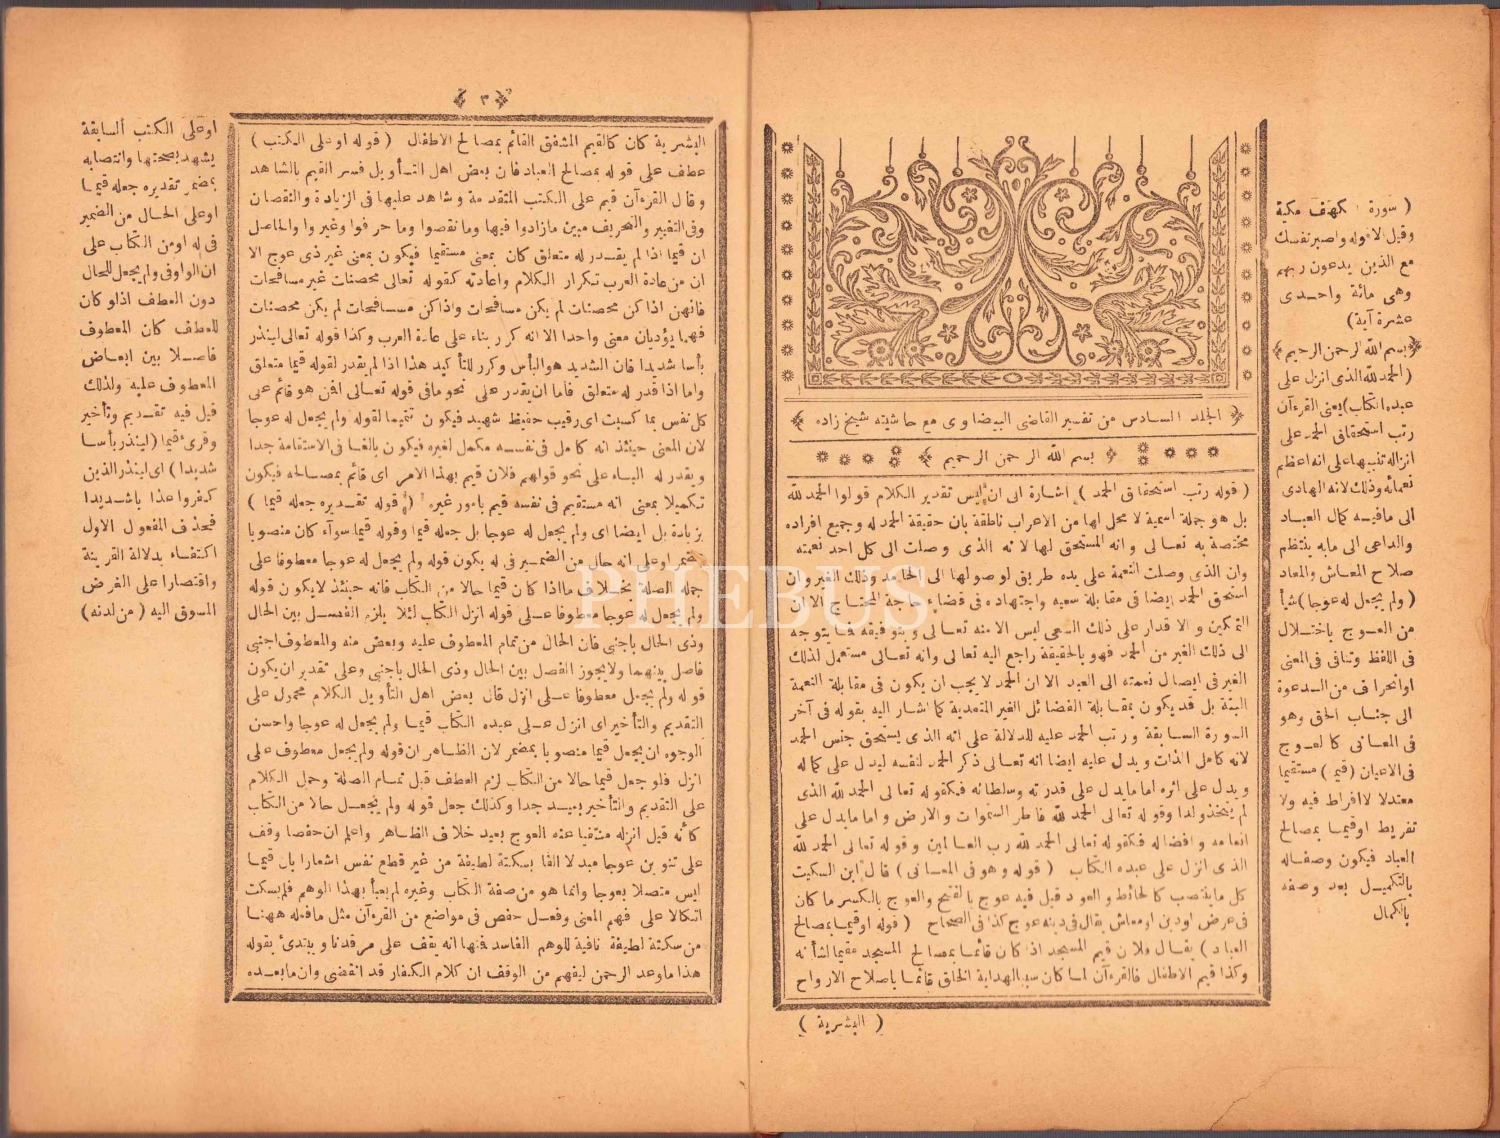 ( سورة الكهف مكية
وقيل الا قوله واصبر نفسك
مع الذين يدعون ربهم
وهى مائة واحدى
عشرة آية)
﴿بسم الله الرحمن الرحيم﴾
(الحمد لله الذى انزل على
عبده الكتاب) يعنى القرءآن
رتب استحقاق الحمد على
انزاله تنبيها على انه اعظم
نعمائه وذلك لانه الهادى
الى مافيه كمال العباد
والداعى الى مابه ينتظم
صلاح المعاش والمعاد
( ولم يجعل له عوجا) شيأ
من العوج باختلال
فى اللفظ وتناف فى المعنى
اوانحراف من الدعوة
الى جناب الحق وهو
فى المعانى كالعوج
فى الاعيان (قيما) مستقيما
معتدلا لاافراط فيه ولا
تفريط اوقيما بمصالح
العباد فيكون وصفاله
بالتكميل بعد وصفه
بالكمال
﴿ الجلد السادس من تفسير القاضى البيضاوى مع حاشيته شيخ زاده ﴾
﴿ بسم الله الرحمن الرحيم ﴾
( قوله رتب استحقاق الحمد ) اشارة الى ان ليس تقدير الكلام قولوا الحمد لله
بل هو جملة اسمية لا محل لها من الاعراب ناطقة بان حقيقة الحمد له وجميع افراده
مختصة به تعالى وانه المستحق لها لانه الذى وصلت الى كل احد نعمته
وان الذى وصلت النعمة على يده طريق لوصولها الى الحامد وذلك الغير وان
استحق الحمد ايضا فى مقابلة سعيه واجتهاده فى قضاء حاجة المحتاج الا ان
التمكين والاقدار على ذلك السعى ليس الا منه تعالى وبتوفيقه فما يتوجه
الى ذلك الغير من الحمد فهو بالحقيقة راجع اليه تعالى وانه تعالى مستعمل لذلك
الغير فى ايصال نعمته الى العبد الا ان الحمد لا يجب ان يكون فى مقابلة النعمة
البتة بل قد يكون بمقابلة الفضائل الغير المتعدية كما اشار اليه بقوله فى آخر
السورة السابقة ورتب الحمد عليه للدلالة على انه الذى يستحق جنس الحمد
لانه كامل الذات ويدل عليه ايضا انه تعالى ذكر الحمد لنفسه ليدل على كماله
ويدل على اثره اما مايدل على قدرته وسلطانه فكقوله تعالى الحمد لله الذى
لم يتخذ ولدا وقوله تعالى الحمد لله فاطر السموات والارض واما مايدل على
انعامه وافضاله فكقوله تعالى الحمد لله رب العالمين وقوله تعالى الحمد لله
الذى انزل على عبده الكتاب ( قوله وهو فى المعانى ) قال ابن السكيت
كل ما ينتصب كالحائط والعود قيل فيه عوج بالفتح والعوج بالكسر ما كان
فى عرض اودين اومعاش يقال فى دينه عوج كذا فى الصحاح ( قوله اوقيما بمصالح
العباد ) يقال فلان قيم المسجد اذ كان قائما بمصالح المسجد مقيما لشأنه
وكذا قيم الاطفال فالقرءآن لما كان سببا لهداية الخلق قائما باصلاح الارواح
( البشرية )
﴿ ٣ ﴾
البشرية كان كالقيم المشفق القائم بمصالح الاطفال ( قوله اوعلى الكتب )
عطف على قوله بمصالح العباد فان بعض اهل التأويل فسر القيم بالشاهد
وقال القرءآن قيم على الكتب المتقدمة وشاهد عليها فى الزيادة والنقصان
وفى التغيير والتحريف مبين مازادوا فيها ومانقصوا وما حرفوا وغيروا والحاصل
ان قيما اذا لم يقدر له متعلق كان بمعنى مستقيما فيكون بمعنى غير ذى عوج الا
ان من عادة العرب تكرار الكلام واعادته كقوله تعالى محصنات غير مسافحات
فانهن اذا كن محصنات لم يكن مسافحات واذا كن مسافحات لم يكن محصنات
فهما يؤديان معنى واحدا الا انه كرر بناء على عادة العرب وكذا قوله تعالى لينذر
بأسا شديدا فان الشديد هو البأس وكرر للتأكيد هذا اذا لم يقدر لقوله قيما متعلق
واما اذا قدر له متعلق فاما ان يقدر على نحو مافى قوله تعالى افمن هو قائم على
كل نفس بما كسبت اى رقيب حفيظ شهيد فيكون تتميما لقوله ولم يجعل له عوجا
لان المعنى حينئذ انه كامل فى نفسه مكمل لغيره فيكون بالغا فى الاستقامة جدا
ويقدر له الباء على نحو قولهم فلان قيم بهذا الامر اى قائم بمصالحه فيكون
تكميلا بمعنى انه مستقيم فى نفسه قيم بامور غيره ( قوله تقديره جعله قيما )
بزيادة بل ايضا اى ولم يجعل له عوجا بل جعله قيما وقوله قيما سوآء كان منصوبا
بمضمر اوعلى انه حال من الضمير فى له يكون قوله ولم يجعل له عوجا معطوفا على
جملة الصلة بخلاف مااذا كان قيما حالا من الكتاب فانه حينئذ لا يكون قوله
ولم يجعل له عوجا معطوفا على قوله انزل الكتاب لئلا يلزم الفصل بين الحال
وذى الحال باجنبى فان الحال من تمام المعطوف عليه وبعض منه والمعطوف اجنبى
فاصل بينهما ولا يجوز الفصل بين الحال وذى الحال باجنبى وعلى تقدير ان يكون
قوله ولم يجعل معطوفا على انزل قال بعض اهل التأويل الكلام محمول على
التقديم والتأخير اى انزل على عبده الكتاب قيما ولم يجعل له عوجا واحسن
الوجوه ان يجعل قيما منصوبا بمضمر لان الظاهر ان قوله ولم يجعل معطوف على
انزل فلو جعل قيما حالا من الكتاب لزم العطف قبل تمام الصلة وحمل الكلام
على التقديم والتأخير بعيد جدا وكذلك جعل قوله ولم يجعل حالا من الكتاب
كأنه قيل انزله منتفيا عنه العوج بعيد خلاف الظاهر واعلم ان حفصا وقف
على تنوين عوجا مبدلا الفا بسكتة لطيفة من غير قطع نفس اشعارا بان قيما
ليس متصلا بعوجا وانما هو من صفة الكتاب وغيره لم يعبأ بهذا الوهم فلم يسكت
اتكالا على فهم المعنى وفعل حفص فى مواضع من القرءآن مثل مافعله ههنا
من سكتة لطيفة نافية للوهم الفاسد فمنها انه يقف على مرقدنا ويبتدئ بقوله
هذا ماوعد الرحمن ليفهم من الوقف ان كلام الكفار قد انقضى وان مابعده
اوعلى الكتب السابقة
يشهد بصحتها وانتصابه
بمضمر تقديره جعله قيما
اوعلى الحال من الضمير
فى له اومن الكتاب على
ان الواو فى ولم يجعل للحال
دون العطف اذلو كان
للعطف كان المعطوف
فاصلا بين ابعاض
المعطوف عليه ولذلك
قيل فيه تقديم وتأخير
وقرئ قيما (لينذر بأسا
شديدا) اى لينذر الذين
كفروا عذابا شديدا
فحذف المفعول الاول
اكتفاء بدلالة القرينة
واقتصارا على الغرض
المسوق اليه (من لدنه)
PHEBUS